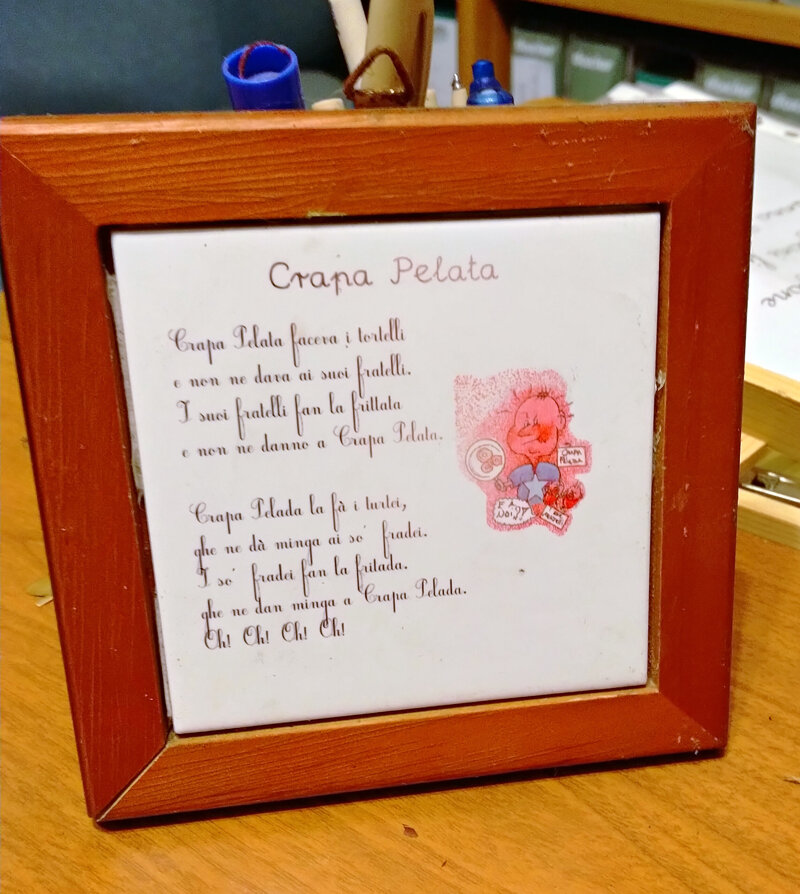 Crapa Pelata
Crapa Pelata faceva i tortelli
e non ne dava ai suoi fratelli.
I suoi fratelli fan la frittata
e non ne danno a Crapa Pelata.
Crapa Pelada la fà i turtei,
ghe ne dà minga ai so' fradei.
I so' fradei fan la fritada.
ghe ne dan minga a Crapa Pelada.
Oh! Oh! Oh! Oh!
CRAPA
PELATA
E A
NOI?!